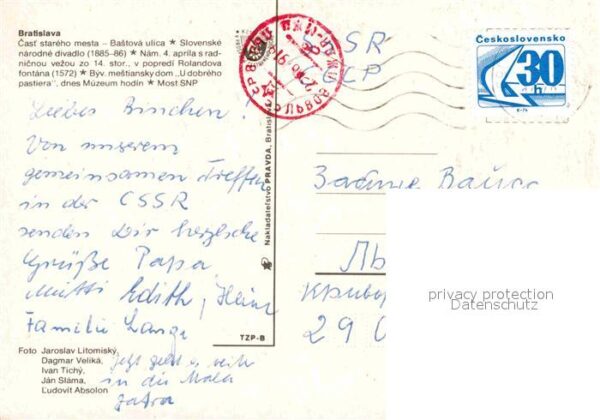 Bratislava
Časť starého mesta – Baštová ulica ★ Slovenské
národné divadlo (1885–86) ★ Nám. 4. apríla s rad-
ničnou vežou zo 14. stor., v popredí Rolandova
fontána (1572) ★ Býv. meštiansky dom „U dobrého
pastiera", dnes Múzeum hodín ★ Most SNP
Liebes Binchen!
Von unserem
gemeinsamen Treffen
in der CSSR
senden Dir herzliche
Grüße Papa,
Mutti Edith, Heinz
Familie Lange
Jetzt geht es weiter
in die Mala
Fatra
Foto Jaroslav Litomiský,
Dagmar Veliká,
Ivan Tichý,
Ján Sláma,
Ľudovít Absolon
TZP-B
Nakladateľstvo PRAVDA, Bratislava
Československo
30
h
SR
CP
Ль
Кривор
290
privacy protection
Datenschutz